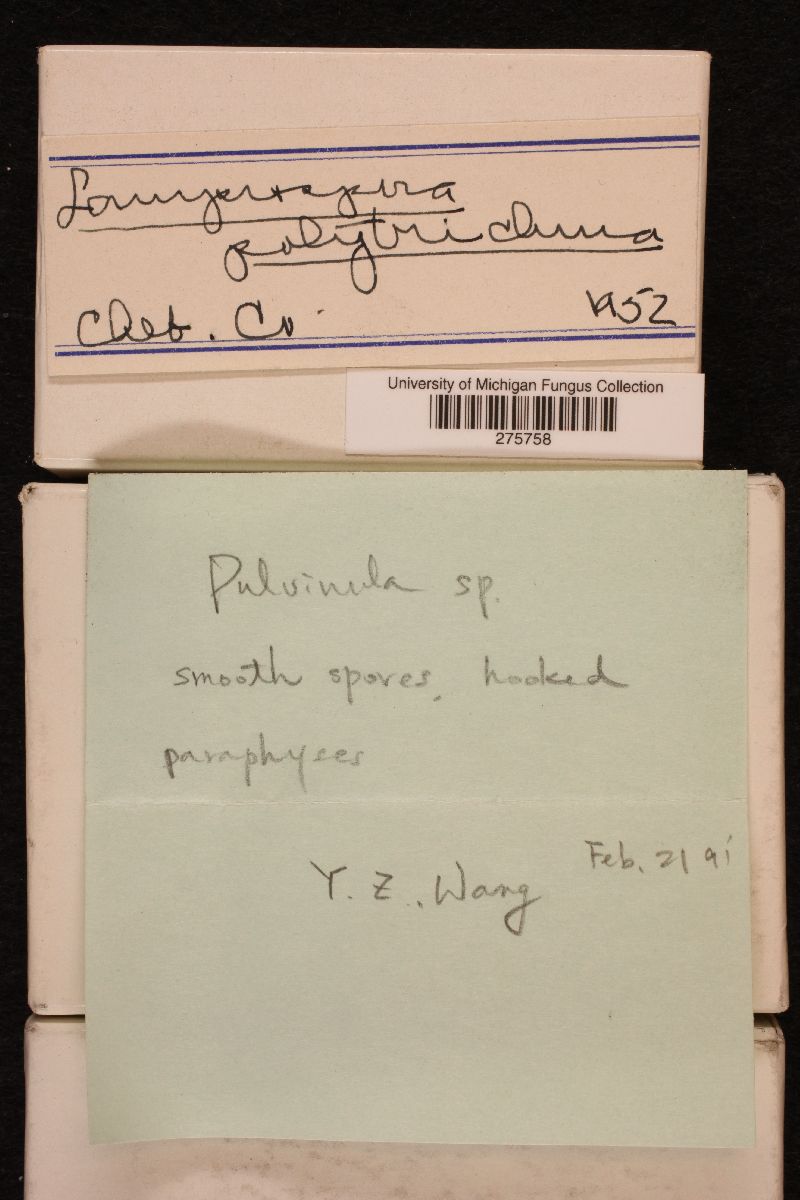 Lamprospora
polytrichina
Cheb. Co. 1952
University of Michigan Fungus Collection
275758
Pulvinula sp.
smooth spores, hooked
paraphyses
Feb. 21 91'
Y. Z. Wang